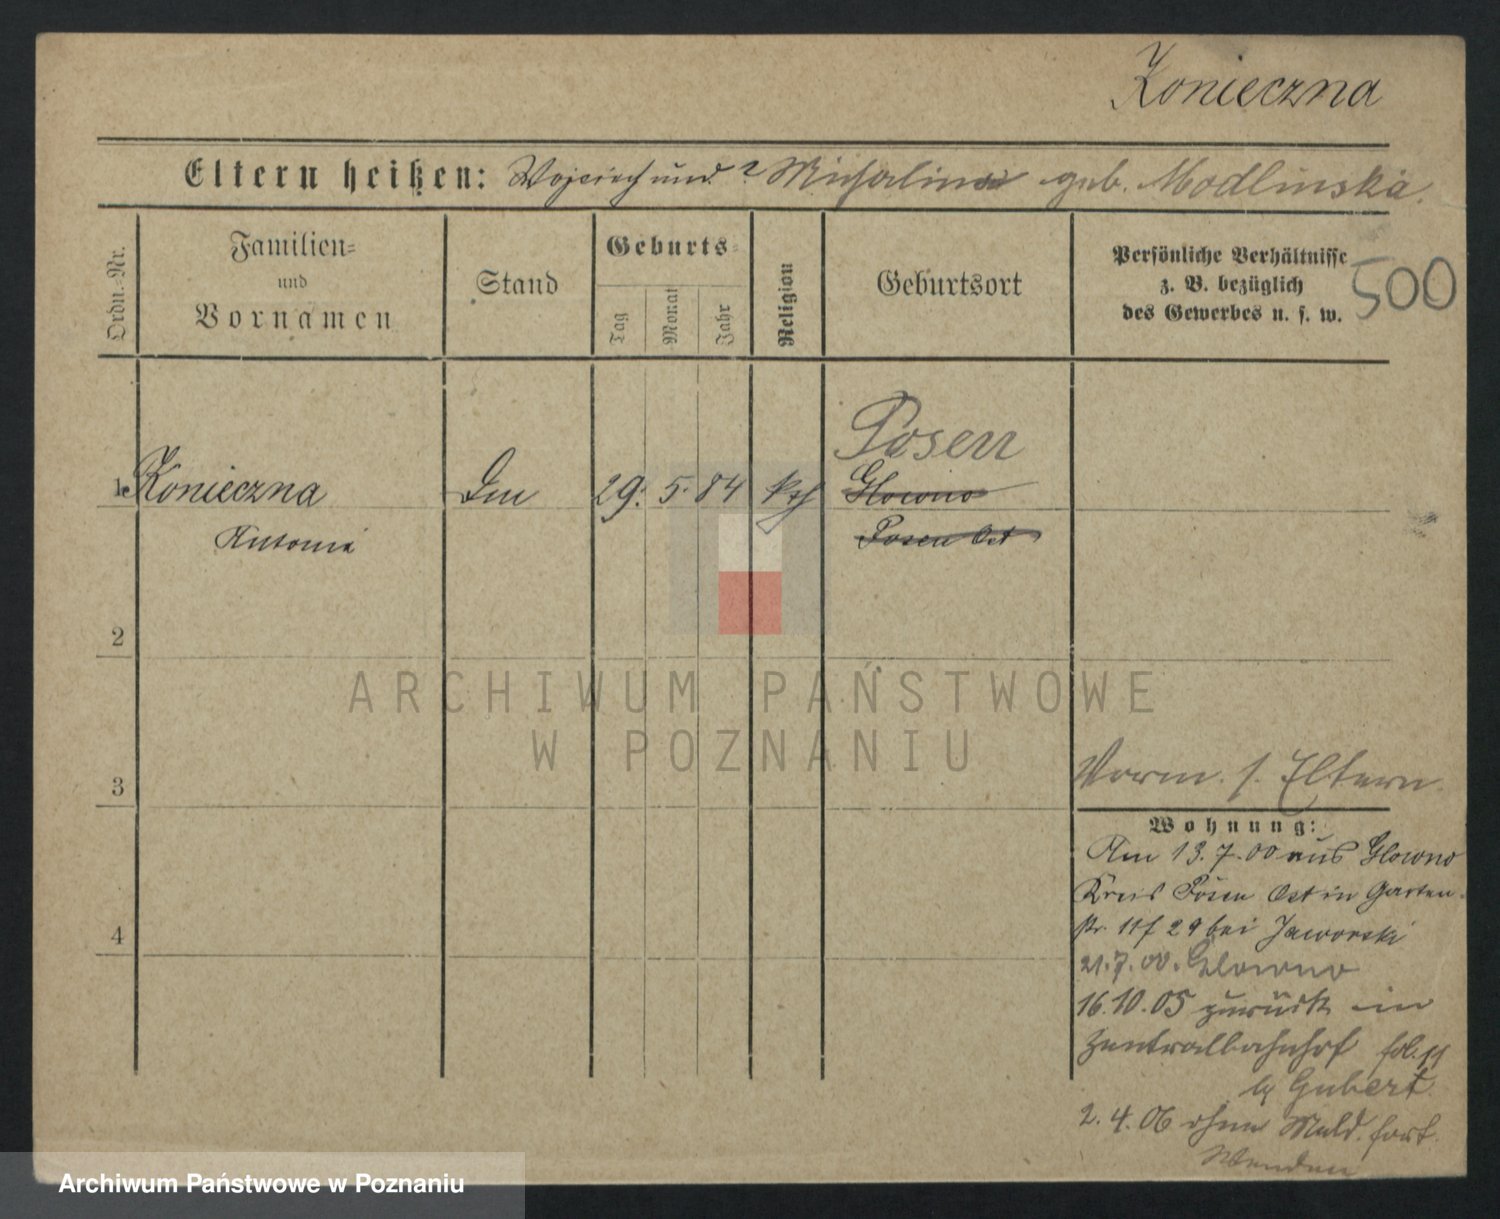 Konieczna
Eltern heißen: Wojciech und ? Michalina geb. Modlinska.
Ordn.-Nr.
Familien-
und
Vornamen
Stand
Geburts-
Tag
Monat
Jahr
Religion
Geburtsort
Persönliche Verhältnisse
z. B. bezüglich
des Gewerbes u. s. w.
500
Posen
1. Konieczna 29. 5. 84 kth Glowno
Antonia Posen Ost
2
ARCHIWUM PAŃSTWOWE
W POZNANIU
3
Vorm. s. Eltern.
Wohnung:
Am 13.7.00 aus Glowno
Kreis Posen Ost in Garten-
str. 11f 29 bei Jaworski
4
21.7.00. Glowno
16.10.05 zurück in
Zentralbahnhof fol. 11
b/ Gubert.
2.4.06 ohne Meld. fort.
Archiwum Państwowe w Poznaniu